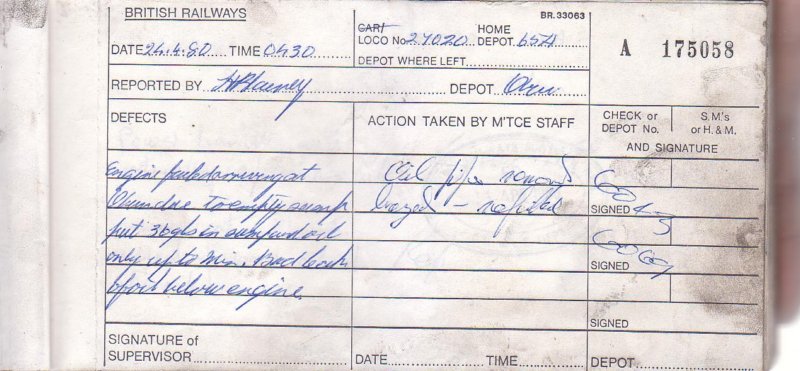 BRITISH RAILWAYS
BR.33063
DATE 24.4.80 TIME 0430
CAR/ HOME
LOCO No 27020 DEPOT 65A
DEPOT WHERE LEFT
A 175058
REPORTED BY DEPOT
DEFECTS
ACTION TAKEN BY M'TCE STAFF
CHECK or DEPOT No.
S.M.'s or H. & M.
AND SIGNATURE
Engine failed on arriving at
Oban due to empty sump
put 36 gls in sump and oil
only up to Min. Bad leak
of oil below engine.
Oil pipe removed
brazed - refitted
SIGNED
SIGNED
SIGNED
SIGNATURE of
SUPERVISOR DATE TIME DEPOT